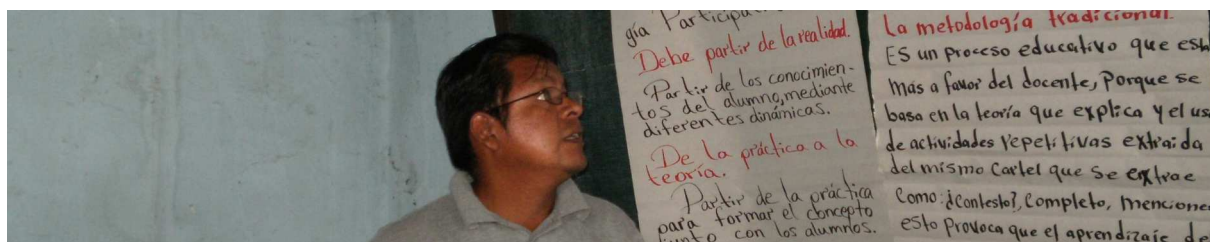 gía Participa
Debe partir de la realidad.
Partir de los conocimien-
tos del alumno, mediante
diferentes dinámicas.
De la práctica a la
teoría.
Partir de la práctica
para formar el concepto
junto con los alumnos.
La metodología tradicional.
ES un proceso educativo que est
más a favor del docente, Porque se
basa en la teoría que explica y el us
de actividades repetitivas extraida
del mismo Cartel que se extrae
Como: ¿Contesto?, Completo, mencione
esto provoca que el aprendizaje de